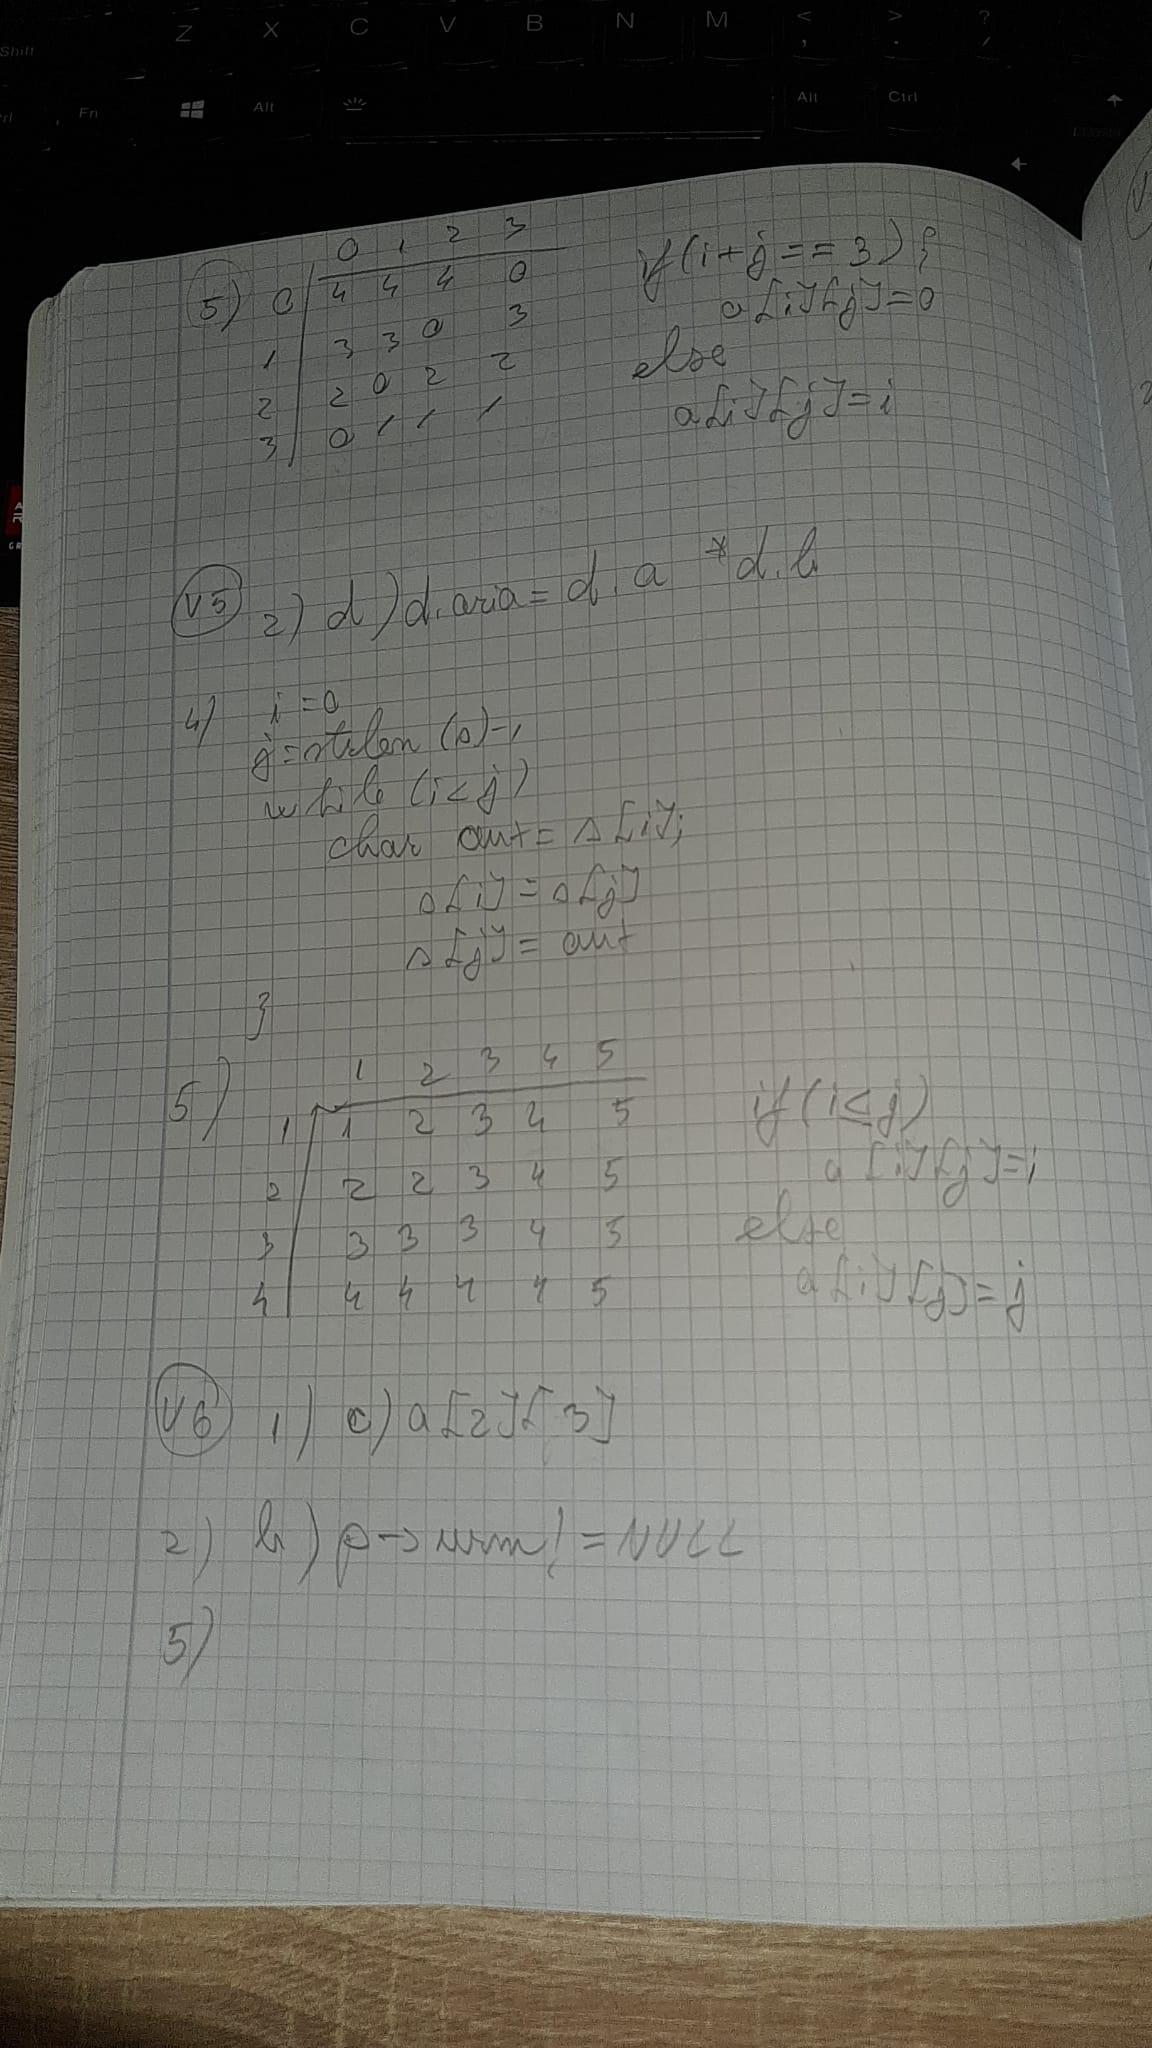 Shift
Z X C V B N M < , > . ? /
Fn Alt Alt Ctrl
0 1 2 3
5) 0 4 4 4 0
1 3 3 0 3
2 2 0 2 2
3 0 1 1 1
if(i+j==3){
a[i][j]=0
else
a[i][j]=i
V5 2) d) d.aria = d.a * d.b
4) i=0
j=strlen(s)-1
while (i<j)
char aux = s[i];
s[i] = s[j]
s[j] = aux
}
1 2 3 4 5
5) 1 1 2 3 4 5
2 2 2 3 4 5
3 3 3 3 4 5
4 4 4 4 4 5
if(i≤j)
a[i][j]=i
else
a[i][j]=j
V6 1) c) a[2][3]
2) b) p->urm!=NULL
5)